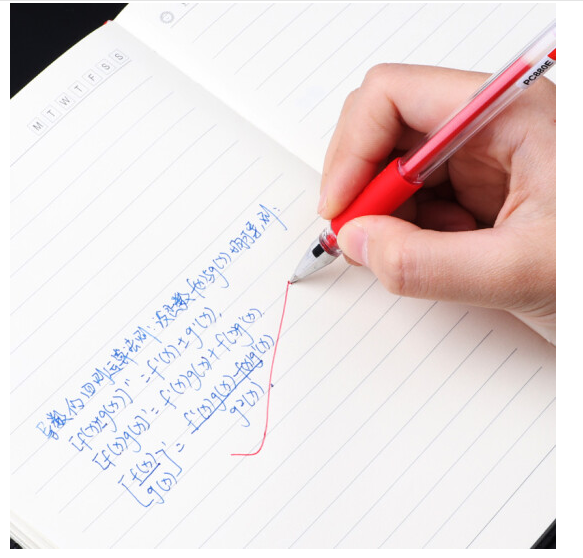 M T W T F S S
PC880E
导数的四则运算法则: 设函数 f(x)与g(x)均可导,则:
[f(x)±g(x)]' = f'(x)±g'(x).
[f(x)g(x)]' = f'(x)g(x)+f(x)g'(x).
[f(x)/g(x)]' = f'(x)g(x)-f(x)g'(x)/g²(x).